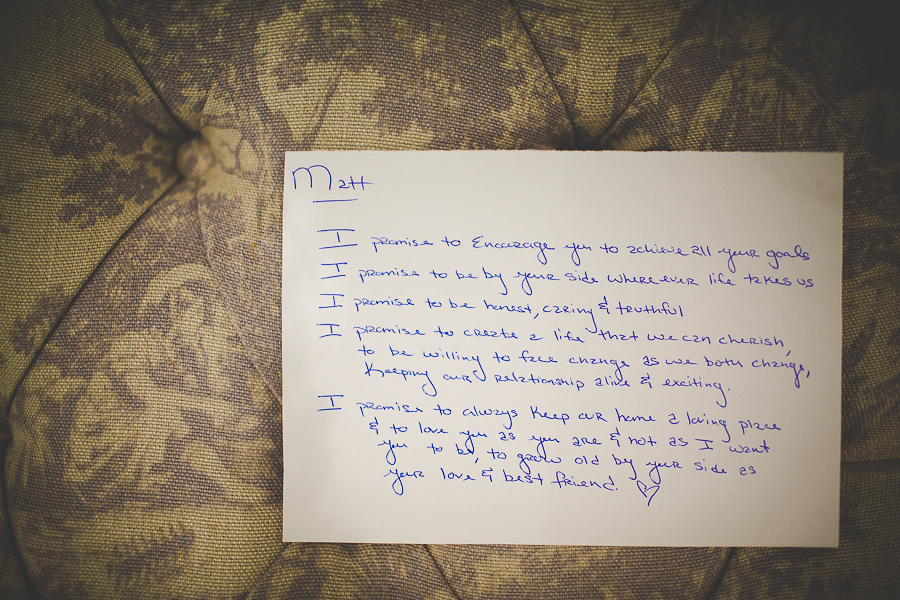 Matt
I promise to Encourage you to achieve all your goals
I promise to be by your side where ever life takes us
I promise to be honest, caring & truthful
I promise to create a life that we can cherish,
to be willing to face change as we both change,
Keeping our relationship alive & exciting.
I promise to always keep our home a loving place
& to love you as you are & not as I want
you to be, to grow old by your side as
your love & best friend. ♡